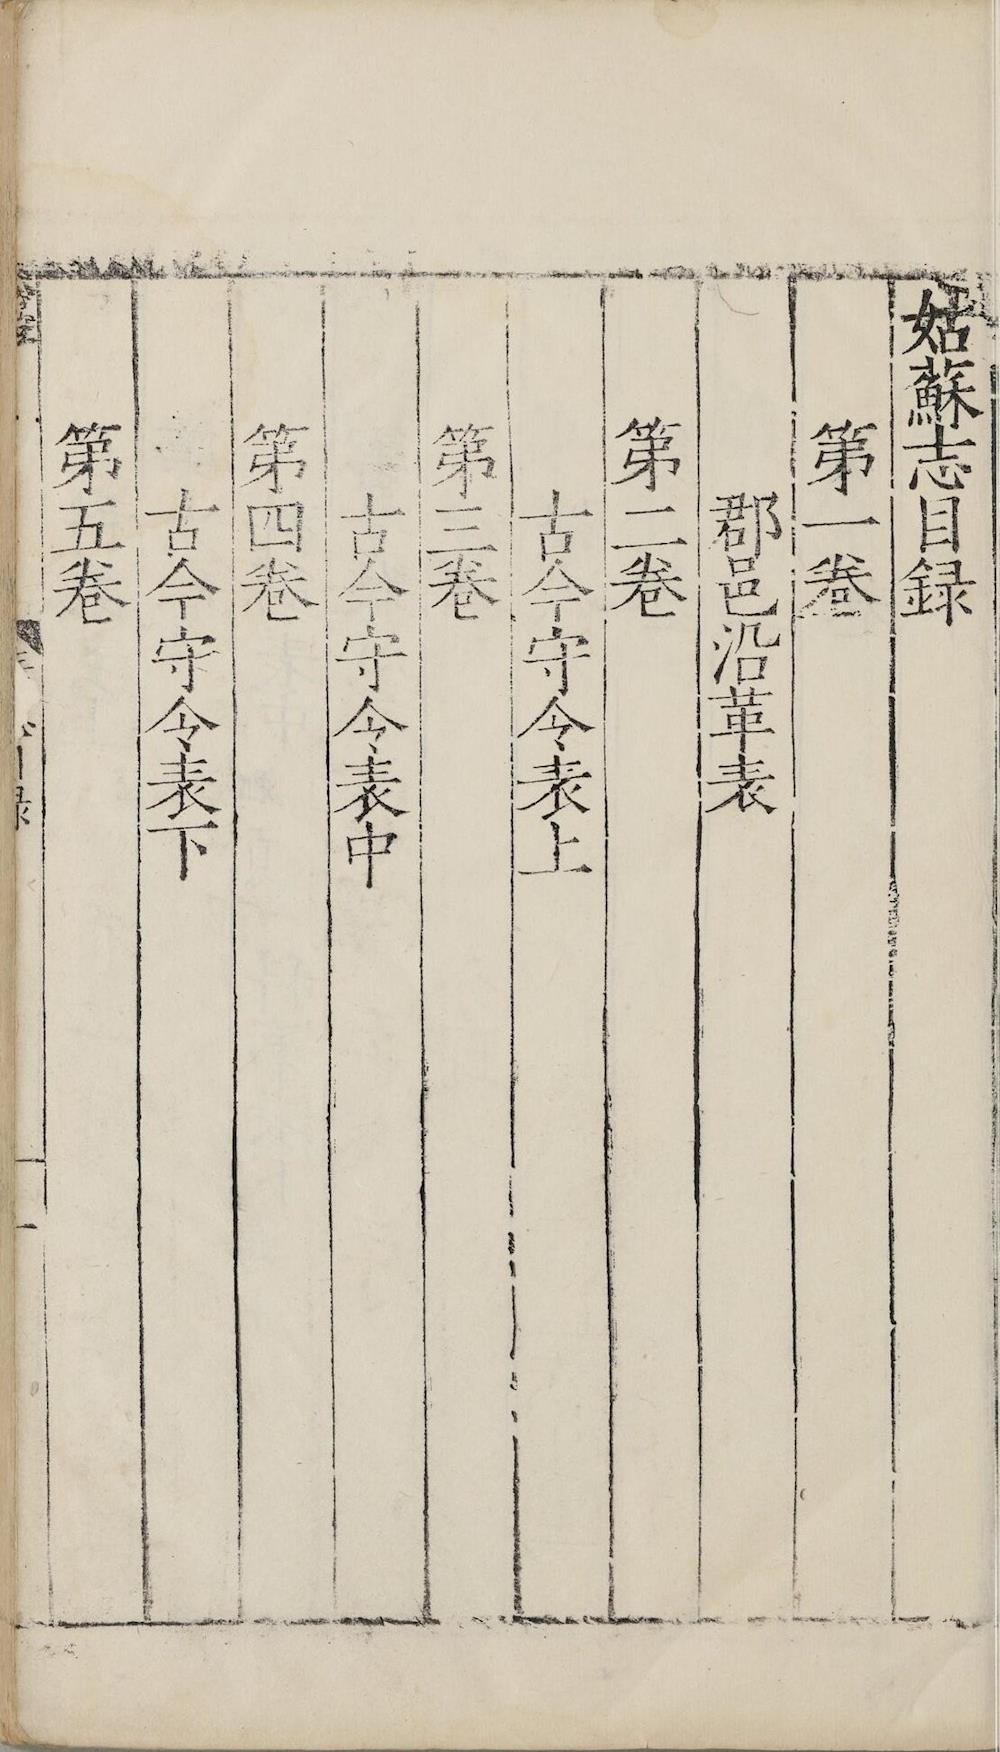 姑蘇志目録
第一卷
郡邑沿革表
第二卷
古今守令表上
第三卷
古今守令表中
第四卷
古今守令表下
第五卷